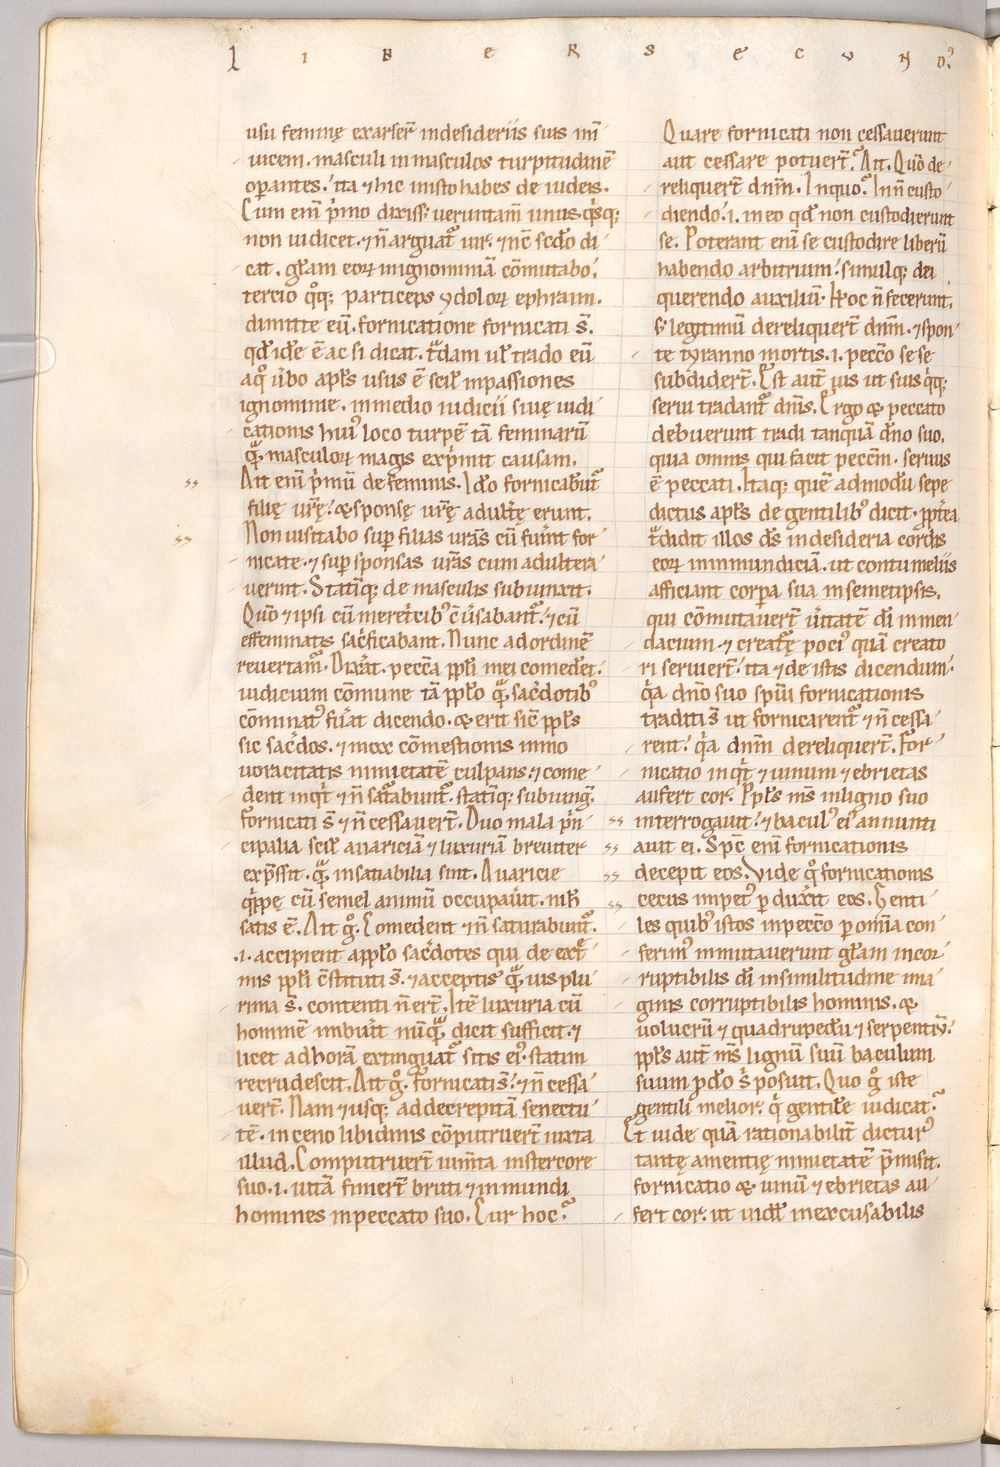 LIBER SECUND᷒
usu feminę exarser̄ indesideriis suis inī
uicem. masculi in masculos turpitudinē
oꝑantes. ita ⁊ hic iuisto habes de iudeis.
Cum enī p̍mo dixiss; ueruntam̄ unusq̍sq;
non iudicet. ⁊ n̄ arguat᷑ uir. ⁊ nc̄ scd̄o di
cat. gl̄am eoꝝ inignominiā cōmutabo.
tercio q̊q; particeps ydoloꝝ ephraim.
dimitte eū. fornicatione fornicati s̄.
qd̄ idē ē ac si dicat. tͣdam ul̄ trado eū
aq̊ ūbo apl̄s usus ē scil̄ inpassiones
ignominie. inmedio iudicii sui iudi
cationis hui᷒ loco turpē tā feminarū
qͣ̄ masculoꝝ magis exp̍mit causam.
Ait enī p̍mū de feminis. Ido fornicabūt᷑
filię ur̄ę. & sponsę ur̄ę adultę erunt.
Non uisitabo suꝑ filias ur̄as cū fūint for
nicate. ⁊ suꝑ sponsas ur̄as cum adultera
uerint. Statīq; de masculis subiunxit.
Qūo ⁊ ipsi cū meretⁱcib᷒ c̄ūsabant᷑. ⁊ cū
effeminatis sacͥficabant. Nunc ad ordinē
reuertam᷑. Dixāt. pecc̄a ppl̄i mei comedēt.
iudicium cōmune tā ppl̄o qͣ̄ sac̄dotib᷒
cōminat᷒ fūat dicendo. & erit sic̄ ppl̄s
sic sac̄dos. ⁊ mox cōmestionis immo
uoracitatis nimietatē culpans. ⁊ come
dent inqͥt ⁊ n̄ sat᷑abunt᷑. statīq; subiung̃.
fornicati s̄ ⁊ n̄ cessauer̄t. Duo mala p̍n
cipalia scil̄ auariciā ⁊ luxuriā breuiter
exp̄ssit. qͣ̄ insatiabilia sint. Auaricie
qͥppę cū semel animū occupaūit. nih̄
satis ē. Ait g̊. Comedent ⁊ n̄ saturabunt᷑.
.i. accipient appl̄o sac̄dotes qui de ext̄
mis ppl̄i c̄stituti s̄. ⁊ acceptis qͣ̄uis plu
rima s̄. contenti n̄ er̄t. Itē luxuria cū
hominē imbūit nūqͣ̄ dicit sufficit. ⁊
licet ad horā extinguat᷑ sitis ei᷒. statim
recrudescit. Ait g̊. fornicati s̄. ⁊ n̄ cessa
uer̄t. Nam ⁊ usq; ad decrepitā senectu
tē. in ceno libidinis cōputruer̄t iuxta
illud. Computruer̄t iumta instercore
suo. i. uitā finier̄t bruti ⁊ inmundi
homines inpeccato suo. Cur hoc.
Quare fornicati non cessauerunt
aut cessare potuer̄t. Ait. Qūo de
reliquer̄t dn̄m. In quo. In n̄ custo
diendo. i. in eo qd̄ non custodierunt
se. Poterant enī se custodire liberū
habendo arbitrium. simulq; dei
querendo auxiliū. Hoc n̄ fecerunt.
s; legitimū dereliquer̄t dn̄m. ⁊ spon
te tyranno mortis. i. pecc̄o se se
subdider̄t. Est aut̄ ius ut suis qͥq;
serui tradant᷑ dn̄is. Ergo & peccato
debuerunt tradi tanquā dn̄o suo.
quia omnis qui facit pecc̄m. seruus
ē peccati. Itaq; quē admodū sepe
dictus apl̄s de gentilib᷒ dicit. ꝓpt̄ea
tͣdidit illos d̄s in desideria cordis
eoꝝ in inmundiciā. ut contumeliis
afficiant corꝑa sua in semetipsis.
qui cōmutauer̄t ūitatē dī in men
dacium. ⁊ creat᷑ę poci᷒ quā creato
ri seruier̄t. ita ⁊ de istis dicendum.
qͥa dn̄o suo spū fornicationis
traditi s̄ ut fornicarent᷑ ⁊ n̄ cessa
rent. qͥa dn̄m dereliquer̄t. For
nicatio inqͥt ⁊ uinum ⁊ ebrietas
aufert cor. Ppl̄s m̄s inligno suo
interrogauit. ⁊ bacul᷒ ei᷒ annunti
auit ei. Spc̄ enī fornicationis
decepit eos. Vide q̊ fornicationis
cecus impet᷒ ꝑduxit eos. Genti
les quib᷒ istos inpecc̄o ꝑ omīa con
ferim᷒ inmutauerunt gl̄am incor
ruptibilis dī insimilitudine ima
ginis corruptibilis hominis. &
uolucrū ⁊ quadrupedū ⁊ serpentiū.
ppl̄s aut̄ m̄s lignū suū baculum
suum ꝓ dō s̍ posuit. Quo g̊ iste
gentili melior. qͥ gentile iudicat.
Et uide quā rationabilit̄ dictur᷒
tantę amentię nimietatē p̄misit.
fornicatio & uinū ⁊ ebrietas au
fert cor. ut uidl̄ inexcusabilis